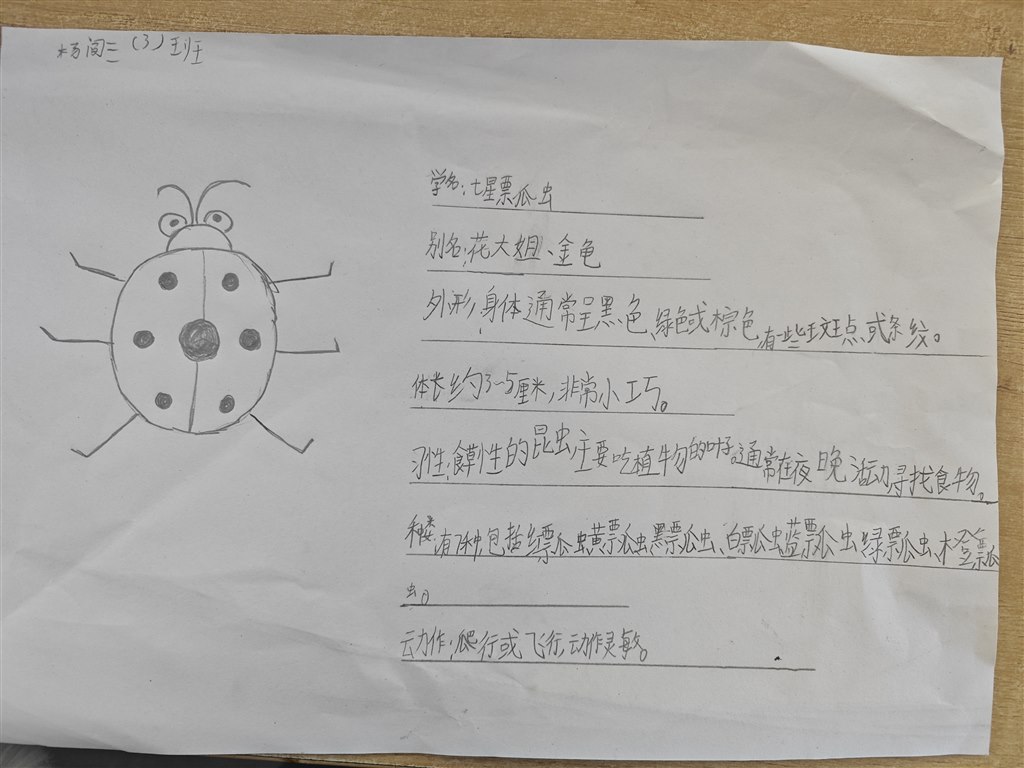 杨阅三(3)班
学名:七星票瓜虫
别名:花大姐、金龟
外形:身体通常呈黑色、绿色或棕色,有一些斑点或条纹。
体长约3~5厘米,非常小巧。
习性:食草性的昆虫主要吃植物的叶子,通常在夜晚活动寻找食物。
种类:有7种,包括红票瓜虫、黄票瓜虫、黑票瓜虫、白瓢瓜虫、蓝票瓜虫、绿票瓜虫、橙票瓜
虫。
动作:爬行或飞行,动作灵敏。